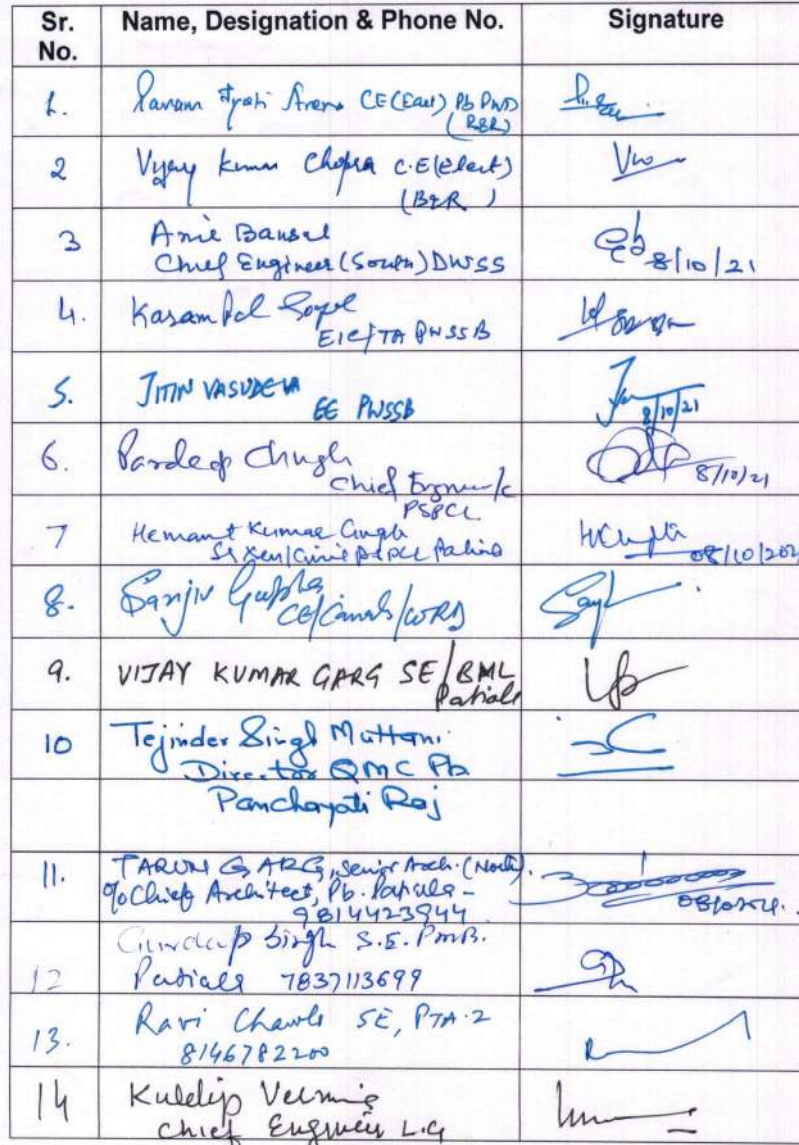 Sr. No. Name, Designation & Phone No. Signature
1. Param Jyoti Arora CE (East) Pb PWD
(B&R)
2 Vijay Kumar Chopra C.E (Elect)
(B&R)
3 Bansal
Chief Engineer (South) DWSS 8/10/21
4. Karampal Goyal
EIC/TA PWSSB
5. JITIN VASUDEVA
EE PWSSB 8/10/21
6. Pardeep Chugh
Chief 8/10/21
PSPCL
7 Hemant Kumar
08/10/2021
8. Sanjiv Gupta
CE/Canals/WRD
9. VIJAY KUMAR GARG SE/BML
Patiala
10 Tejinder Singh
Director QMC Pb
Panchayati Raj
11. TARUN GARG, Senior Arch. (North).
O/o Chief Architect, Pb. Patiala -
9814423944
12 Gurdeep Singh S.E.
Patiala 7837113699
13. Ravi Chawla SE, PTA-2
8146782200
14 Kuldip Verma
Chief Engineer L.G